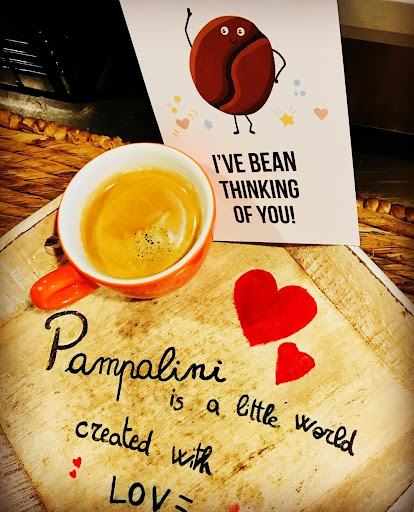 I'VE BEAN
THINKING
OF YOU!
Pampalini
is a little world
created with
LOVE